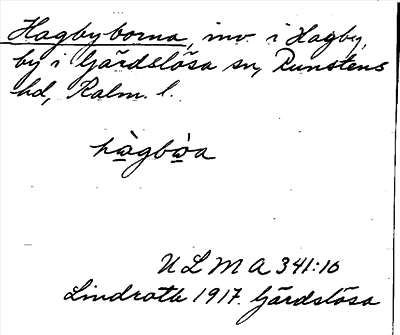 Hagbyborna, inv. i Hagby,
by i Gärdslösa sn, Runstens
hd, Kalm. l.
hàgbòa
ULMA 341:10
Lindroth 1917. Gärdslösa